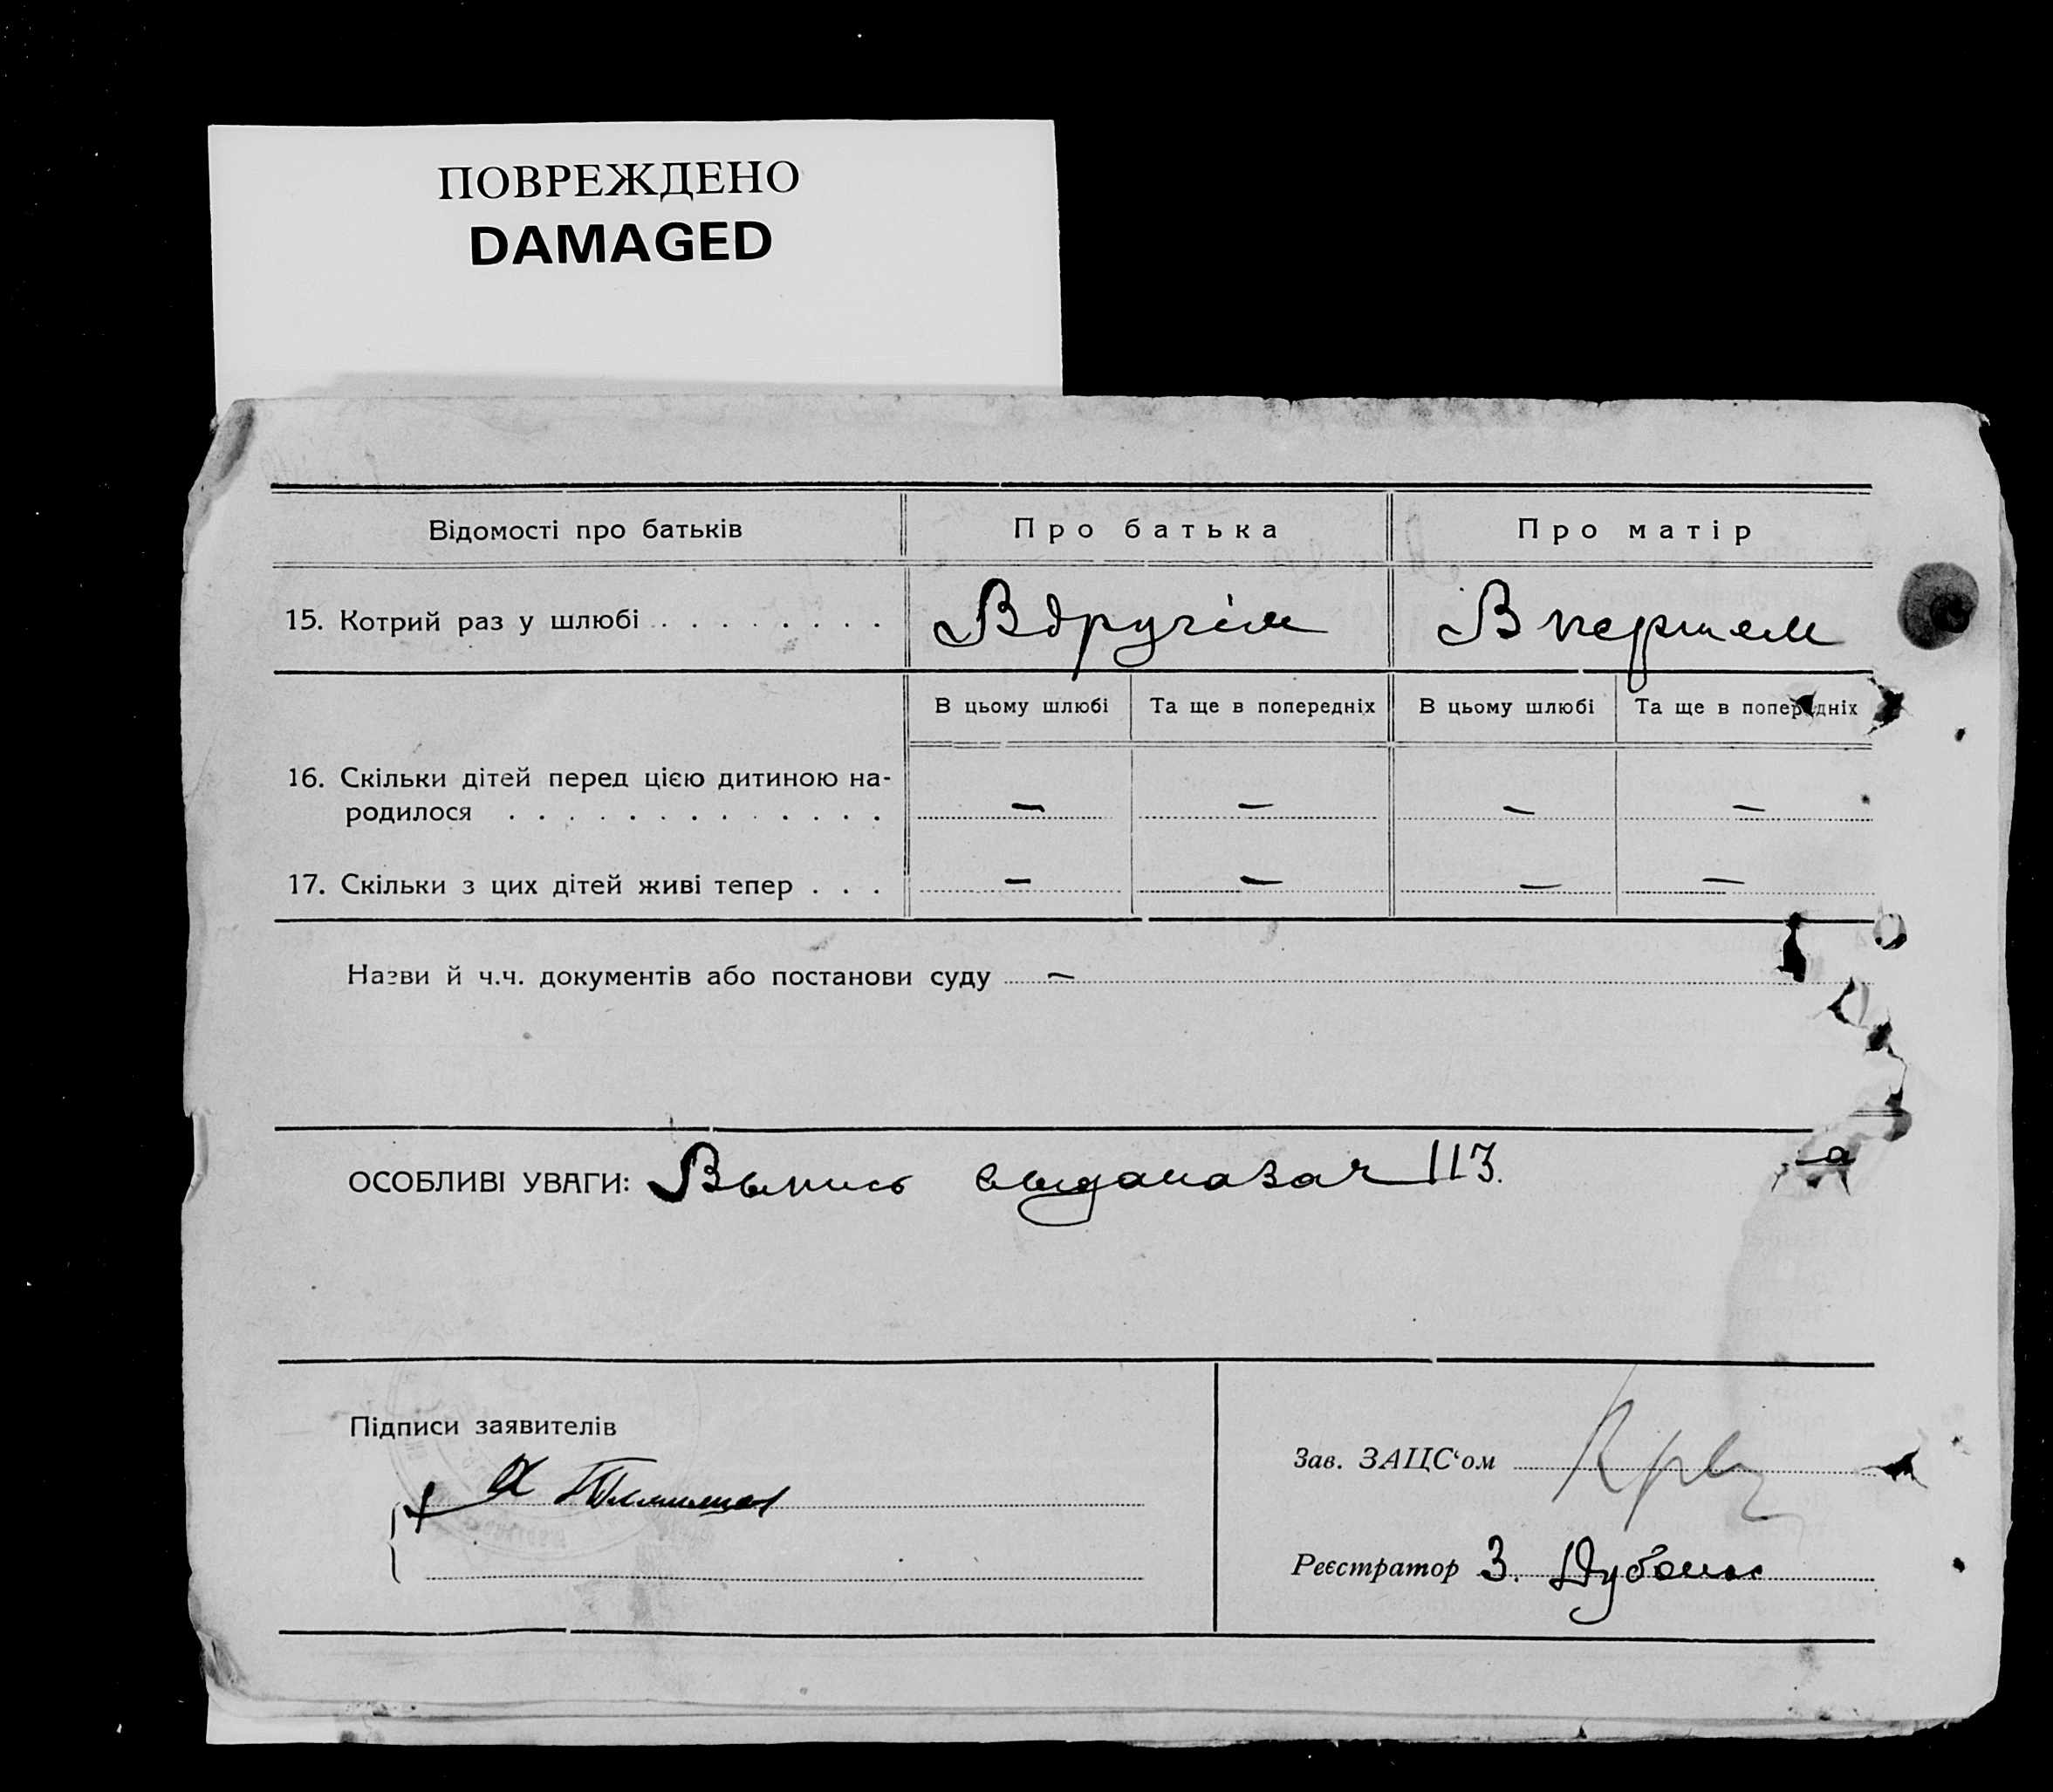 ПОВРЕЖДЕНО
DAMAGED
Відомості про батьків
Про батька
Про матір
15. Котрий раз у шлюбі . . . . . . . .
Вдругім
В першем
В цьому шлюбі
Та ще в попередніх
В цьому шлюбі
Та ще в попередніх
16. Скільки дітей перед цією дитиною на-
родилося . . . . . . . . . . . . .
— — — —
17. Скільки з цих дітей живі тепер . . .
— — — —
Назви й ч.ч. документів або постанови суду —
ОСОБЛИВІ УВАГИ: Выпись выдана за ч 113.
Підписи заявителів
Зав. ЗАЦС‘ом
Реєстратор З.